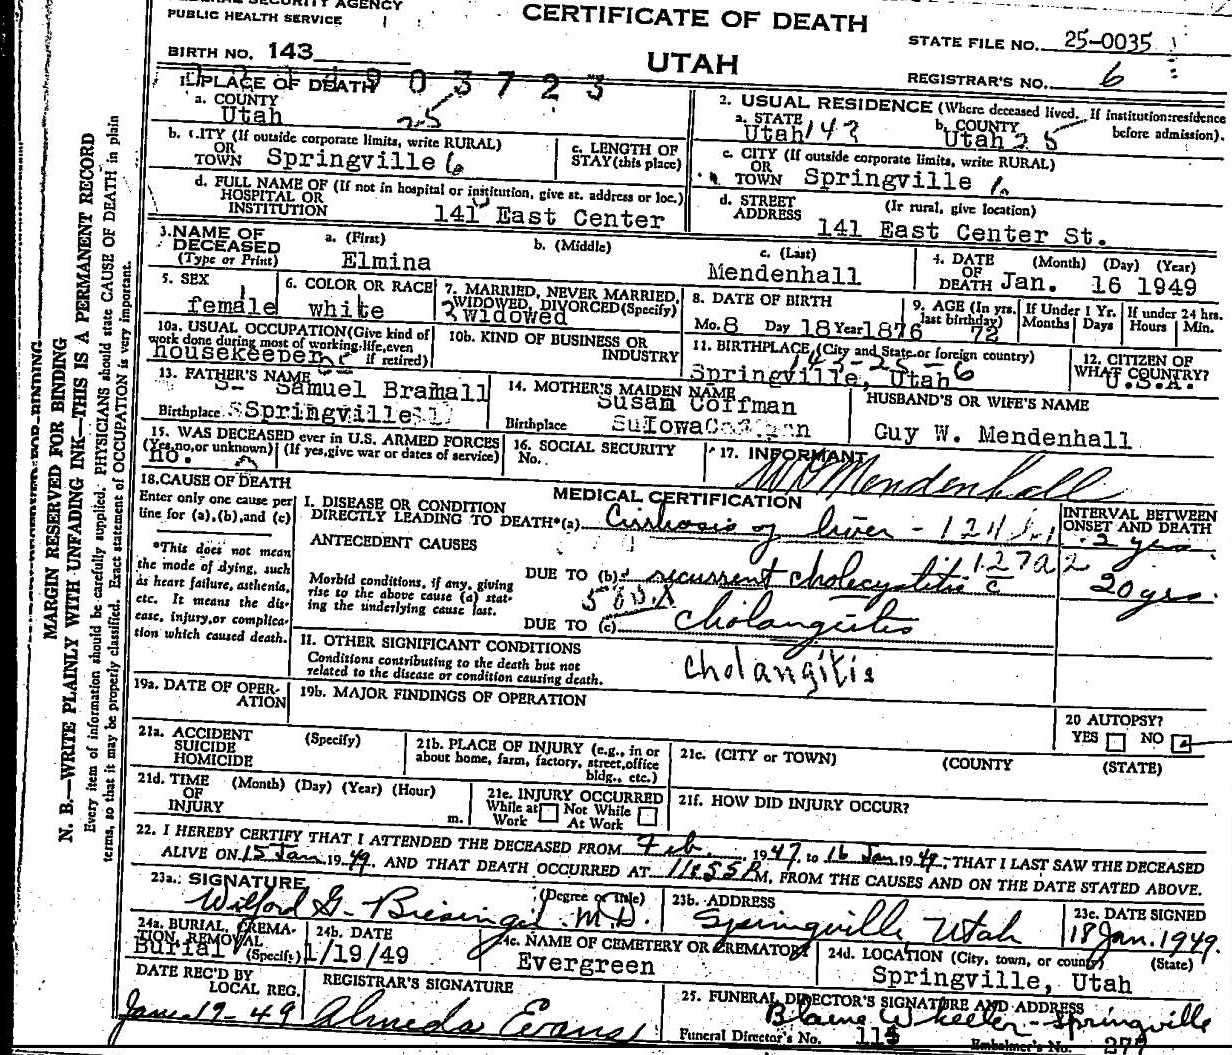 SECURITY AGENCY
PUBLIC HEALTH SERVICE
CERTIFICATE OF DEATH
STATE FILE NO. 25-0035
BIRTH NO. 143
UTAH
REGISTRAR'S NO. 6
903723
1. PLACE OF DEATH
a. COUNTY
Utah 25
2. USUAL RESIDENCE (Where deceased lived. If institution:residence before admission).
a. STATE
Utah 143
b. COUNTY
Utah 25
b. CITY (If outside corporate limits, write RURAL)
OR
TOWN Springville 6
c. LENGTH OF
STAY(this place)
c. CITY (If outside corporate limits, write RURAL)
OR
TOWN Springville
d. FULL NAME OF (If not in hospital or institution, give st. address or loc.)
HOSPITAL OR
INSTITUTION
141 East Center
d. STREET
ADDRESS
(If rural, give location)
141 East Center St.
3. NAME OF
DECEASED
(Type or Print)
a. (First)
Elmina
b. (Middle)
c. (Last)
Mendenhall
4. DATE
OF
DEATH
(Month) (Day) (Year)
Jan. 16 1949
5. SEX
female
6. COLOR OR RACE
white
7. MARRIED, NEVER MARRIED,
WIDOWED, DIVORCED(Specify)
widowed
8. DATE OF BIRTH
Mo. 8 Day 18 Year 1876
9. AGE (In yrs.
last birthday)
72
If Under 1 Yr.
Months Days
If under 24 hrs.
Hours Min.
10a. USUAL OCCUPATION(Give kind of
work done during most of working life, even
if retired)
housekeeper
10b. KIND OF BUSINESS OR
INDUSTRY
11. BIRTHPLACE (City and State or foreign country)
143-25-6
Springville, Utah
12. CITIZEN OF
WHAT COUNTRY?
U.S.A.
13. FATHER'S NAME
Samuel Bramall
Birthplace Springville
14. MOTHER'S MAIDEN NAME
Susan Coffman
Birthplace Iowa
HUSBAND'S OR WIFE'S NAME
Guy W. Mendenhall
15. WAS DECEASED ever in U.S. ARMED FORCES
(Yes,no,or unknown) (If yes,give war or dates of service)
no.
16. SOCIAL SECURITY
No.
17. INFORMANT
Mendenhall
18. CAUSE OF DEATH
Enter only one cause per
line for (a),(b),and (c)
MEDICAL CERTIFICATION
INTERVAL BETWEEN
ONSET AND DEATH
I. DISEASE OR CONDITION
DIRECTLY LEADING TO DEATH*(a) Cirrhosis of liver
2 yrs.
*This does not mean
the mode of dying, such
as heart failure, asthenia,
etc. It means the dis-
ease, injury,or complica-
tion which caused death.
ANTECEDENT CAUSES
Morbid conditions, if any, giving
rise to the above cause (a) stat-
ing the underlying cause last.
DUE TO (b) recurrent cholecystitis c
20 yrs.
DUE TO (c) cholangitis
II. OTHER SIGNIFICANT CONDITIONS
Conditions contributing to the death but not
related to the disease or condition causing death.
cholangitis
19a. DATE OF OPER-
ATION
19b. MAJOR FINDINGS OF OPERATION
20 AUTOPSY?
YES NO
21a. ACCIDENT
SUICIDE
HOMICIDE
(Specify)
21b. PLACE OF INJURY (e.g., in or
about home, farm, factory, street,office
bldg., etc.)
21c. (CITY or TOWN) (COUNTY (STATE)
21d. TIME
OF
INJURY
(Month) (Day) (Year) (Hour)
m.
21e. INJURY OCCURRED
While at Work Not While At Work
21f. HOW DID INJURY OCCUR?
22. I HEREBY CERTIFY THAT I ATTENDED THE DECEASED FROM Feb. 1947, to 16 Jan 1949, THAT I LAST SAW THE DECEASED
ALIVE ON 15 Jan 1949, AND THAT DEATH OCCURRED AT 11:55 P M, FROM THE CAUSES AND ON THE DATE STATED ABOVE.
23a. SIGNATURE (Degree or title)
Wilford G. Biesinger M.D.
23b. ADDRESS
Springville, Utah
23c. DATE SIGNED
18 Jan. 1949.
24a. BURIAL, CREMA-
TION, REMOVAL
(Specify)
Burial
24b. DATE
1/19/49
24c. NAME OF CEMETERY OR CREMATORY
Evergreen
24d. LOCATION (City, town, or county) (State)
Springville, Utah
DATE REC'D BY
LOCAL REG.
Jan-19-49
REGISTRAR'S SIGNATURE
Almeda Evans
25. FUNERAL DIRECTOR'S SIGNATURE AND ADDRESS
Blaine Wheeler - Springville
Funeral Director's No. 115
Embalmer's No. 277
MARGIN RESERVED FOR BINDING
N. B.—WRITE PLAINLY WITH UNFADING INK—THIS IS A PERMANENT RECORD
Every item of information should be carefully supplied. PHYSICIANS should state CAUSE OF DEATH in plain
terms, so that it may be properly classified. Exact statement of OCCUPATION is very important.